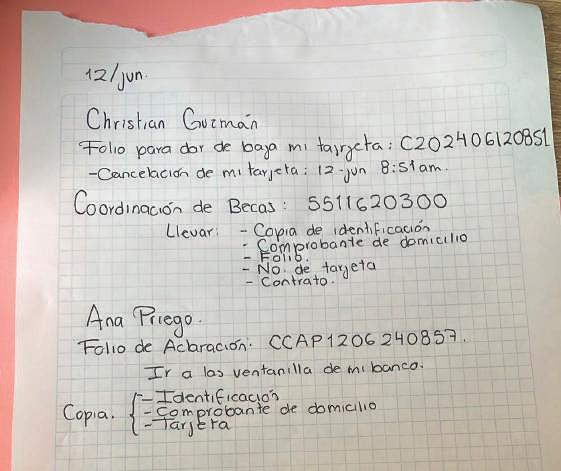 12/jun.
Christian Guzmán
Folio para dar de baja mi tajrjeta: C202406120851
-Cancelación de mi tarjeta: 12-jun 8:51am.
Coordinación de Becas: 5511620300
Llevar: - Copia de identificación
- Comprobante de domicilio
- Folio.
- No. de tarjeta
- Contrato.
Ana Priego.
Folio de Aclaración: CCAP1206240857.
Ir a las ventanilla de mi banco.
Copia. - Identificación
- Comprobante de domicilio
- Tarjeta